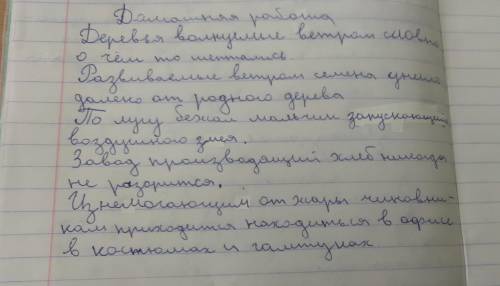 Домашняя работа
Деревья волнуемые ветром словно
о чём то шептались
Развиваемые ветром семена унесло
далеко от родного дерева
По лугу бежал мальчик запускающий
воздушного змея.
Завод производящий хлеб никогда
не разорится.
Изнемогающим от жары чиновни-
кам приходится находиться в офисе
в костюмах и галстуках